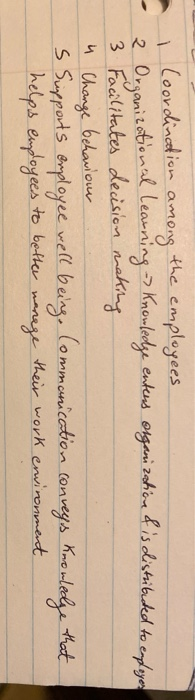 1 Coordination among the employees
2 Organizational learning → Knowledge enters organization & is distributed to employee
3 Facilitates decision making
4 Change behaviour
5 Supports employee well being. Communication conveys knowledge that
helps employees to better manage their work environment